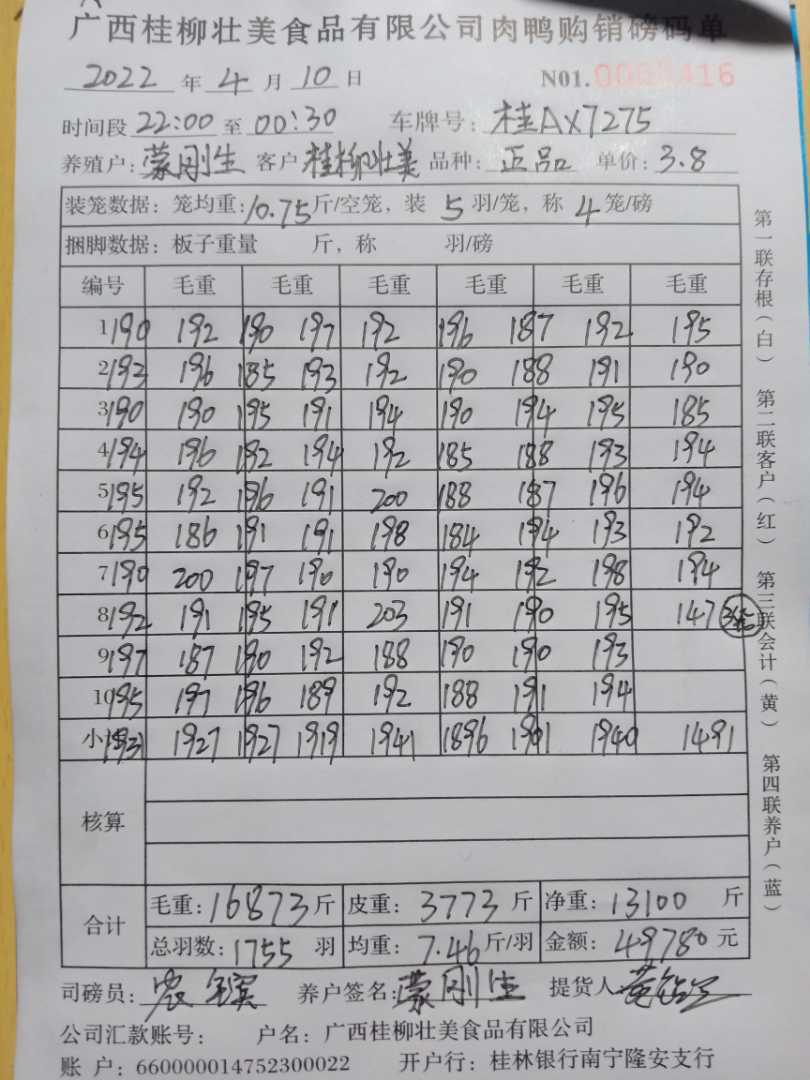 广西桂柳壮美食品有限公司肉鸭购销磅码单
2022 年 4 月 10 日 N01.
时间段 22:00 至 00:30 车牌号: 桂AX7275
养殖户: 蒙刚生 客户 桂柳壮美 品种: 正品 单价: 3.8
装笼数据: 笼均重: 10.75 斤/空笼, 装 5 羽/笼, 称 4 笼/磅
捆脚数据: 板子重量 斤, 称 羽/磅
编号 毛重 毛重 毛重 毛重 毛重 毛重
1 190 192 190 197 192 196 187 192 195
2 193 196 185 193 192 190 188 191 190
3 190 190 195 191 194 190 194 195 185
4 194 196 192 194 192 185 188 193 194
5 195 192 196 191 200 188 187 196 194
6 195 186 191 191 198 184 194 193 192
7 190 200 197 190 190 194 192 198 194
8 192 191 195 191 203 191 190 195 147
9 197 187 190 192 188 190 190 193
10 195 197 196 189 192 188 191 194
小计 1931 1927 1927 1919 1941 1896 1901 1940 1491
核算
合计
毛重: 16873 斤 皮重: 3773 斤 净重: 13100 斤
总羽数: 1755 羽 均重: 7.46 斤/羽 金额: 49780 元
司磅员: 养户签名: 蒙刚生 提货人
公司汇款账号: 户名: 广西桂柳壮美食品有限公司
账 户: 660000014752300022 开户行: 桂林银行南宁隆安支行
第一联存根(白) 第二联客户(红) 第三联会计(黄) 第四联养户(蓝)